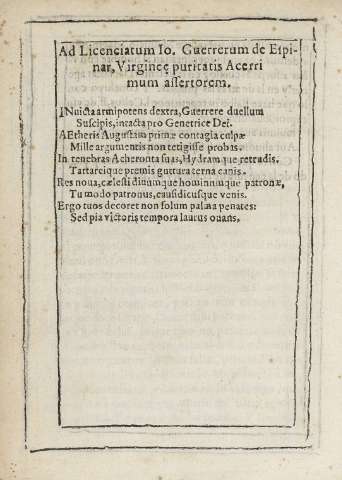 Ad Licenciatum Io. Guerrerum de Eſpi-
nar, Virgineę puritatis Acerri
mum aſſertorem.
INuicta armipotens dextra, Guerrere duellum
Suſcipis, intacta pro Genetrice Dei.
AEtheris Auguſtam primæ contagia culpæ
Mille argumentis non tetigiſſe probas.
In tenebras Acheronta ſuas, Hydramque retrudis.
Tartareique premis guttura terna canis.
Res noua, cæleſti diuumque hominumque patronæ,
Tu modo patronus, cauſidicuſque venis.
Ergo tuos decoret non ſolum palma penates:
Sed pia victoris tempora laurus ouans.